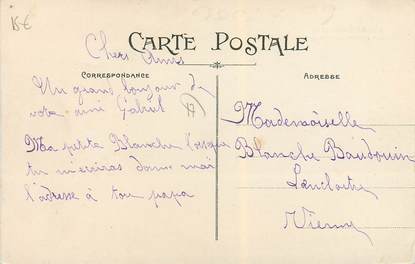 15€
Chers Amis
CARTE POSTALE
CORRESPONDANCE
ADRESSE
Un grand bonjour de
votre ami Gabriel
Ma petite Blanche lorsque
tu m'ecriras donne moi
l'adresse à ton papa
Mademoiselle
Blanche Baudouin
Vienne